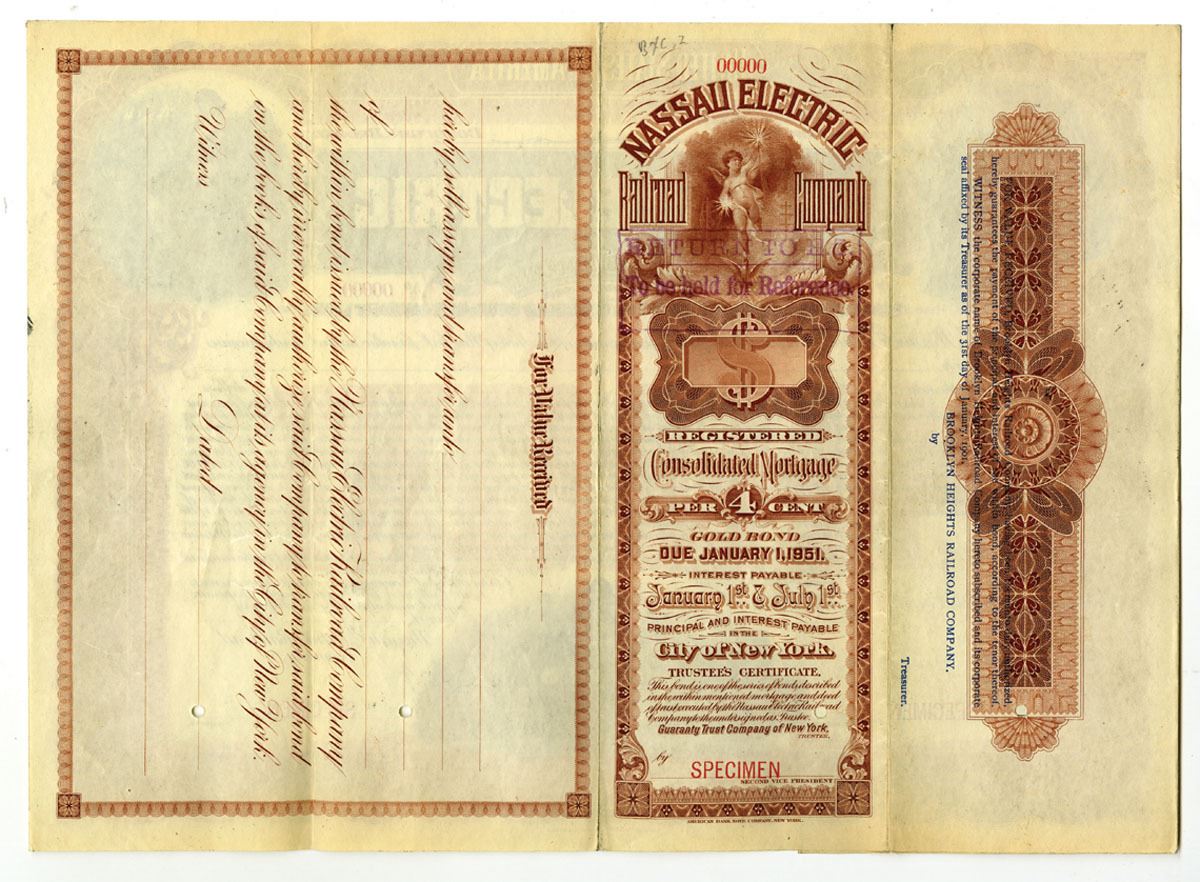 For Value Received
hereby sell assign and transfer unto
of
the within bond issued by the Nassau Electric Railroad Company
and hereby irrevocably authorize said Company to transfer said bond
on the books of said Company at its agency in the City of New York.
Dated
Witness
B & C, 2
00000
NASSAU ELECTRIC
Railroad Company
RETURN TO
To be held for Reference
$
REGISTERED
Consolidated Mortgage
PER 4 CENT
GOLD BOND
DUE JANUARY 1, 1951.
INTEREST PAYABLE
January 1st & July 1st
PRINCIPAL AND INTEREST PAYABLE
IN THE
City of New York.
TRUSTEE'S CERTIFICATE.
This bond is one of the series of bonds described
in the within mentioned mortgage and deed
of trust executed by the Nassau Electric Railroad
Company to the undersigned as Trustee.
Guaranty Trust Company of New York,
TRUSTEE,
by
SPECIMEN
SECOND VICE PRESIDENT
AMERICAN BANK NOTE COMPANY, NEW YORK.
FOR VALUE RECEIVED, Brooklyn Heights Railroad
hereby guarantees the payment of the principal and interest of the within bond, according to the tenor thereof.
WITNESS the corporate name of Brooklyn Heights Railroad Company hereto subscribed and its corporate
seal affixed by its Treasurer as of the 31st day of January, 1901.
BROOKLYN HEIGHTS RAILROAD COMPANY.
by
Treasurer.